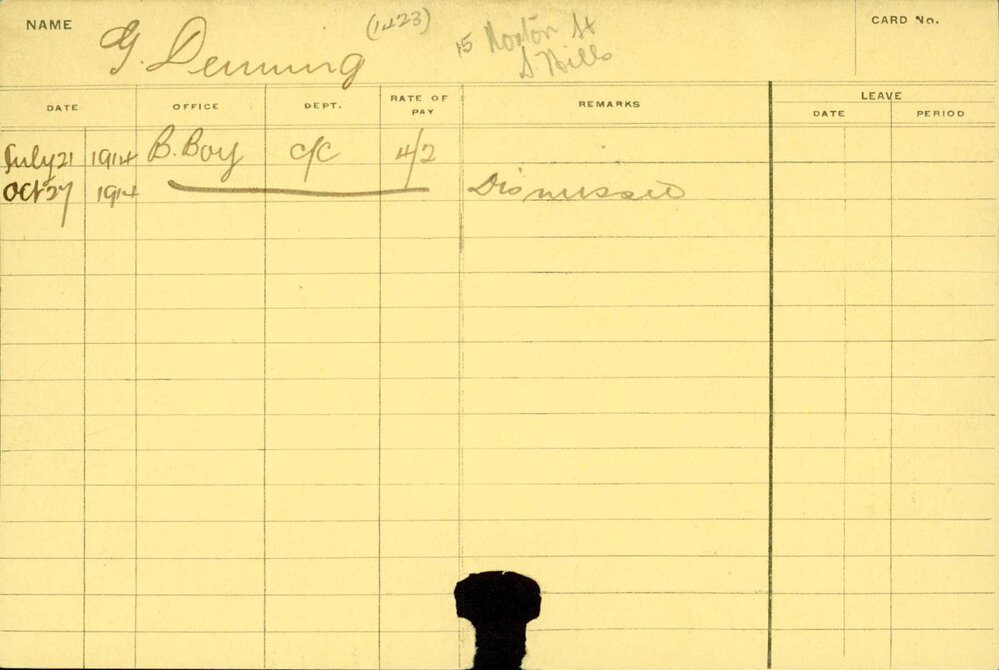 NAME G. Denning (1423) 15 Norton St CARD No.
S. Hills
DATE OFFICE DEPT. RATE OF PAY REMARKS LEAVE
DATE PERIOD
July 21 1914 B. Boy C/C 4/2
Oct 27 1914 Dismissed